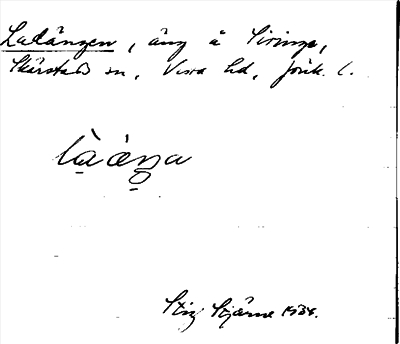 Ladängen, äng å Siringe,
Skärstads sn, Vista hd, Jönk. l.
làäŋa
Stig Stjärne 1934.